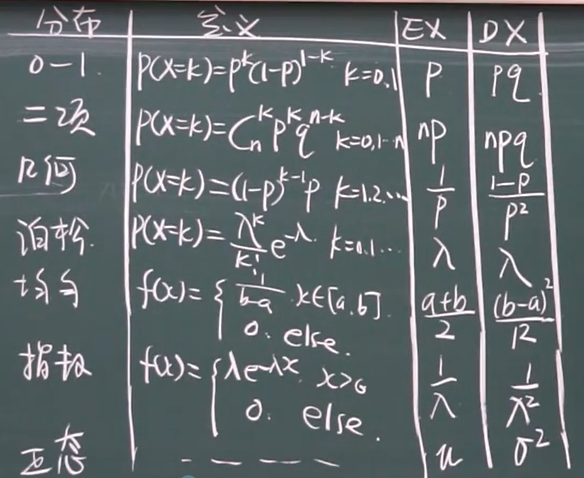 分布 定义 EX DX
0-1 P(X=k)=p^k(1-p)^{1-k} k=0,1 p pq
二项 P(X=k)=C_n^k p^k q^{n-k} k=0,1…n np npq
几何 P(X=k)=(1-p)^{k-1}p k=1,2,… 1/p (1-p)/p²
泊松 P(X=k)=λ^k/k! e^{-λ} k=0,1… λ λ
均匀 f(x)={ 1/(b-a), x∈[a,b] (a+b)/2 (b-a)²/12
0, else.
指数 f(x)={ λe^{-λx}, x>0 1/λ 1/λ²
0, else.
正态 ————— u σ²